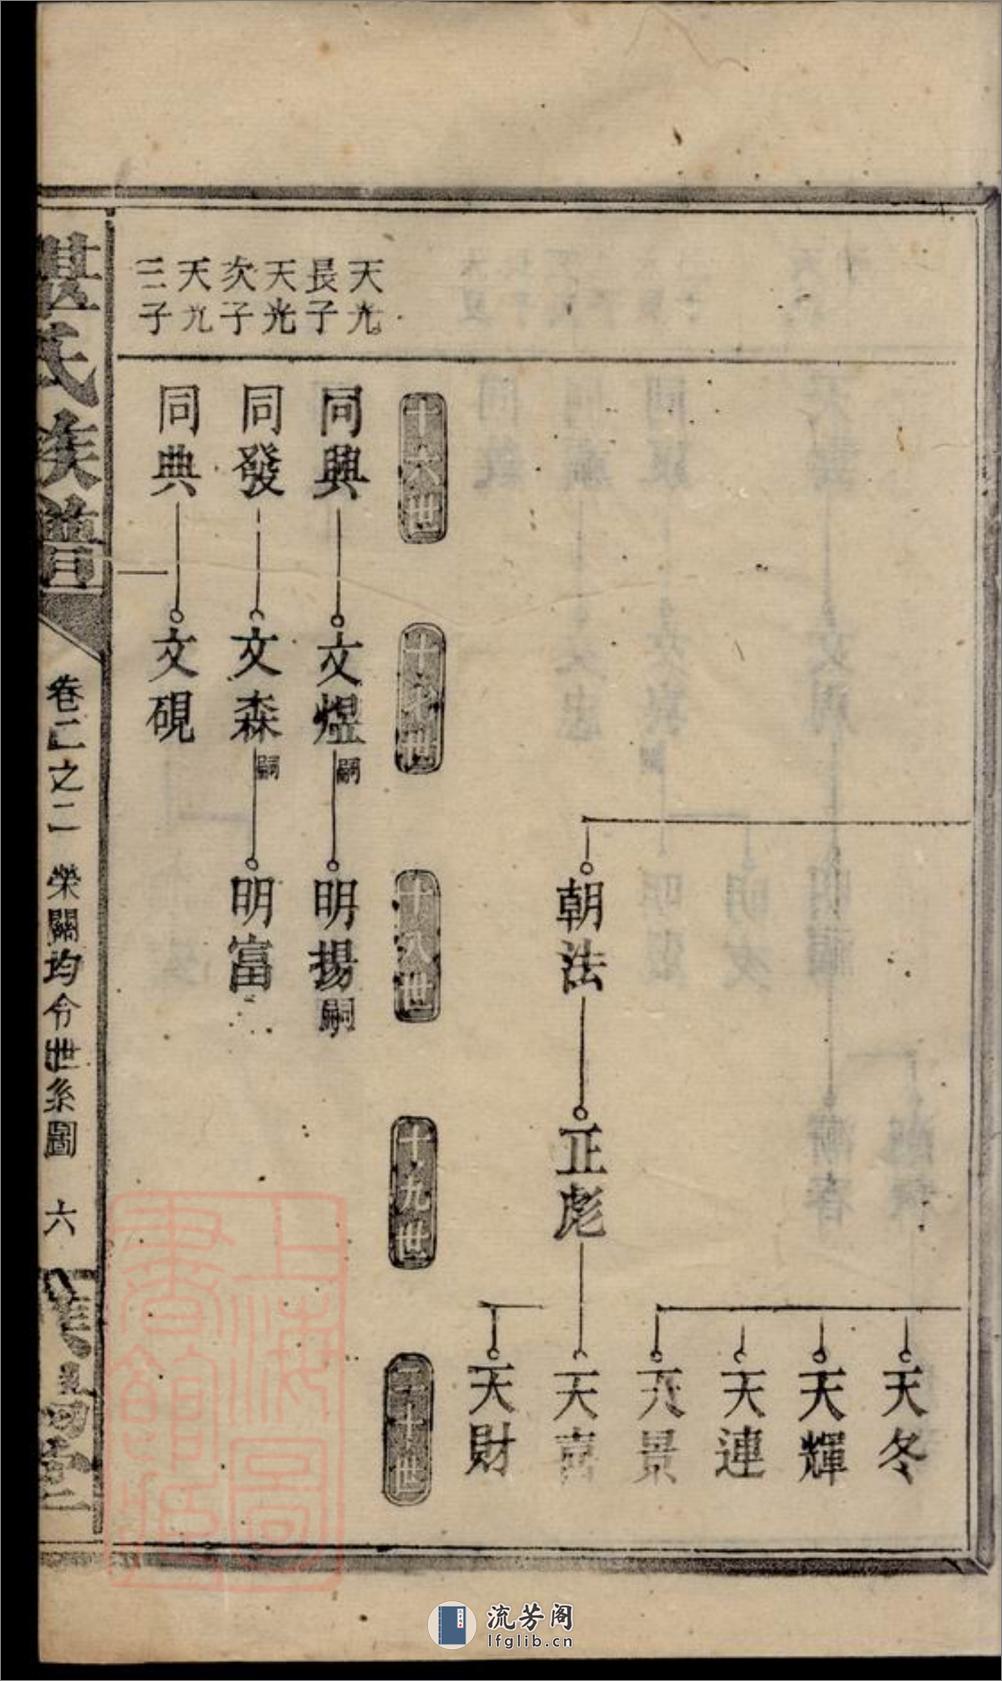 天冬
天輝
天連
天景
朝法
正彪
天喜
天財
十六世
十七世
十八世
十九世
二十世
天光
長子
同興
文煜
嗣
明揚
嗣
天光
次子
同發
文森
嗣
明富
天光
三子
同典
文硯
湛氏族譜
卷二之二
榮闗均令世系圖
六
上海圖書館藏
流芳阁
lfglib.cn